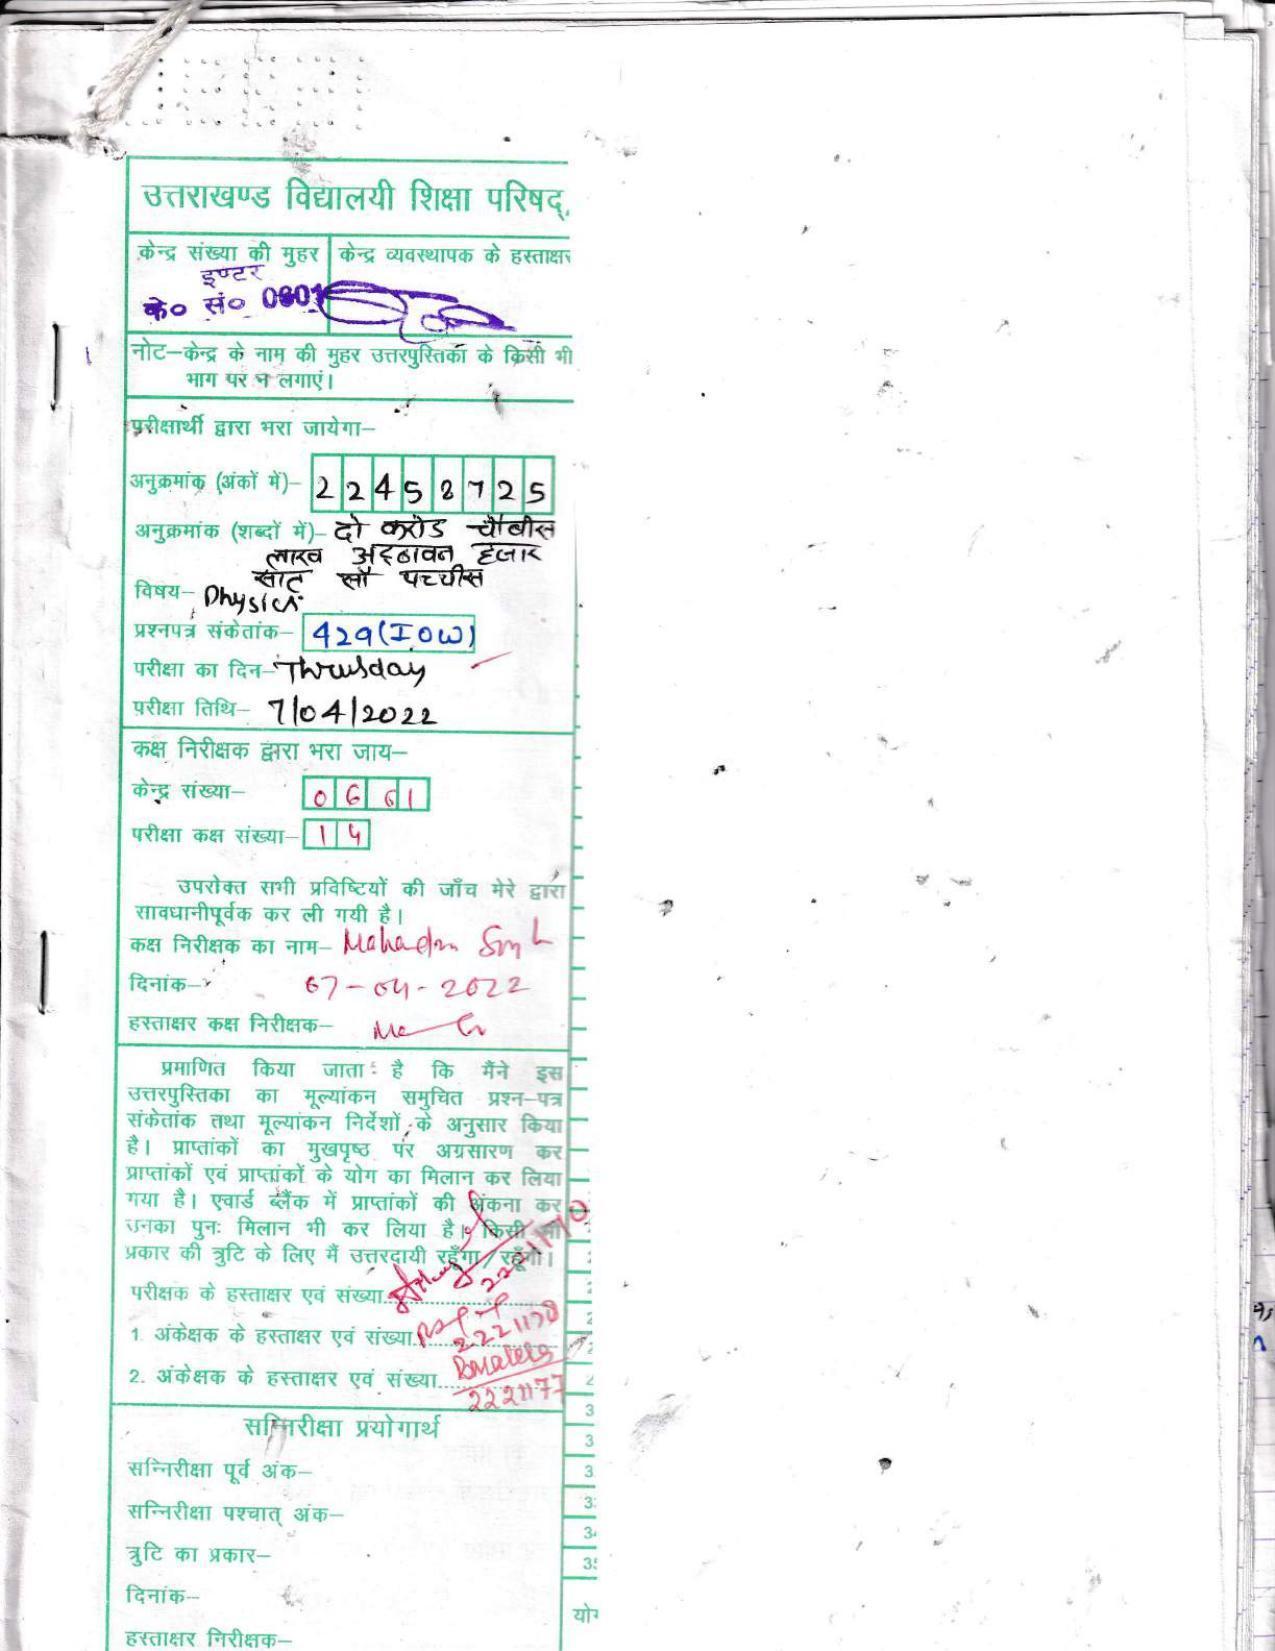 उत्तराखण्ड विद्यालयी शिक्षा परिषद्,
केन्द्र संख्या की मुहर
केन्द्र व्यवस्थापक के हस्ताक्षर
इण्टर
के० सं०
नोट–केन्द्र के नाम की मुहर उत्तरपुस्तिका के किसी भी
भाग पर न लगाएं।
परीक्षार्थी द्वारा भरा जायेगा–
अनुक्रमांक (अंकों में)– 2 2 4 5 8 7 2 5
अनुक्रमांक (शब्दों में)– दो करोड चौबीस
लाख अट्ठावन हजार
सात सौ पच्चीस
विषय– Physics
प्रश्नपत्र संकेतांक– 429(IOW)
परीक्षा का दिन– Thrusday
परीक्षा तिथि– 7/04/2022
कक्ष निरीक्षक द्वारा भरा जाय–
केन्द्र संख्या– 0 6 6 1
परीक्षा कक्ष संख्या– 1 4
उपरोक्त सभी प्रविष्टियों की जाँच मेरे द्वारा
सावधानीपूर्वक कर ली गयी है।
कक्ष निरीक्षक का नाम–
दिनांक– 07-04-2022
हस्ताक्षर कक्ष निरीक्षक–
प्रमाणित किया जाता है कि मैंने इस
उत्तरपुस्तिका का मूल्यांकन समुचित प्रश्न–पत्र
संकेतांक तथा मूल्यांकन निर्देशों के अनुसार किया
है। प्राप्तांकों का मुखपृष्ठ पर अग्रसारण कर
प्राप्तांकों एवं प्राप्तांकों के योग का मिलान कर लिया
गया है। एवार्ड ब्लैंक में प्राप्तांकों की अंकना कर
उनका पुनः मिलान भी कर लिया है। किसी भी
प्रकार की त्रुटि के लिए मैं उत्तरदायी रहूँगा/रहूँगी।
परीक्षक के हस्ताक्षर एवं संख्या
1. अंकेक्षक के हस्ताक्षर एवं संख्या
2. अंकेक्षक के हस्ताक्षर एवं संख्या 2221177
सन्निरीक्षा प्रयोगार्थ
सन्निरीक्षा पूर्व अंक–
सन्निरीक्षा पश्चात् अंक–
त्रुटि का प्रकार–
दिनांक–
हस्ताक्षर निरीक्षक–